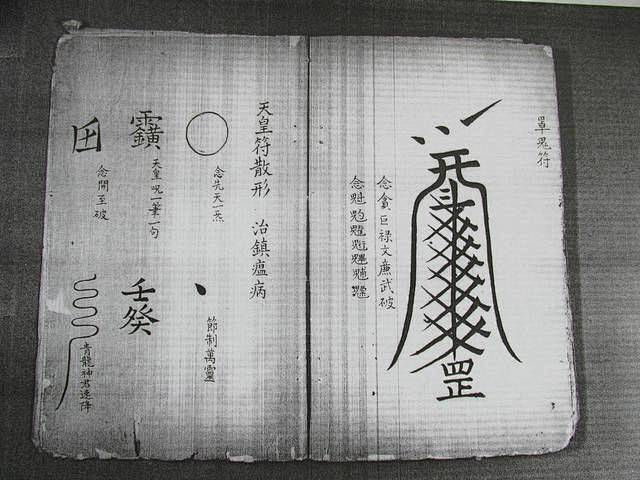 符
罡
念貪巨祿文廉武破
念魁
天皇符散形 治鎮瘟病
念先天一炁
節制萬靈
天皇咒一筆一句
壬癸
念開至破
青龍神君速降